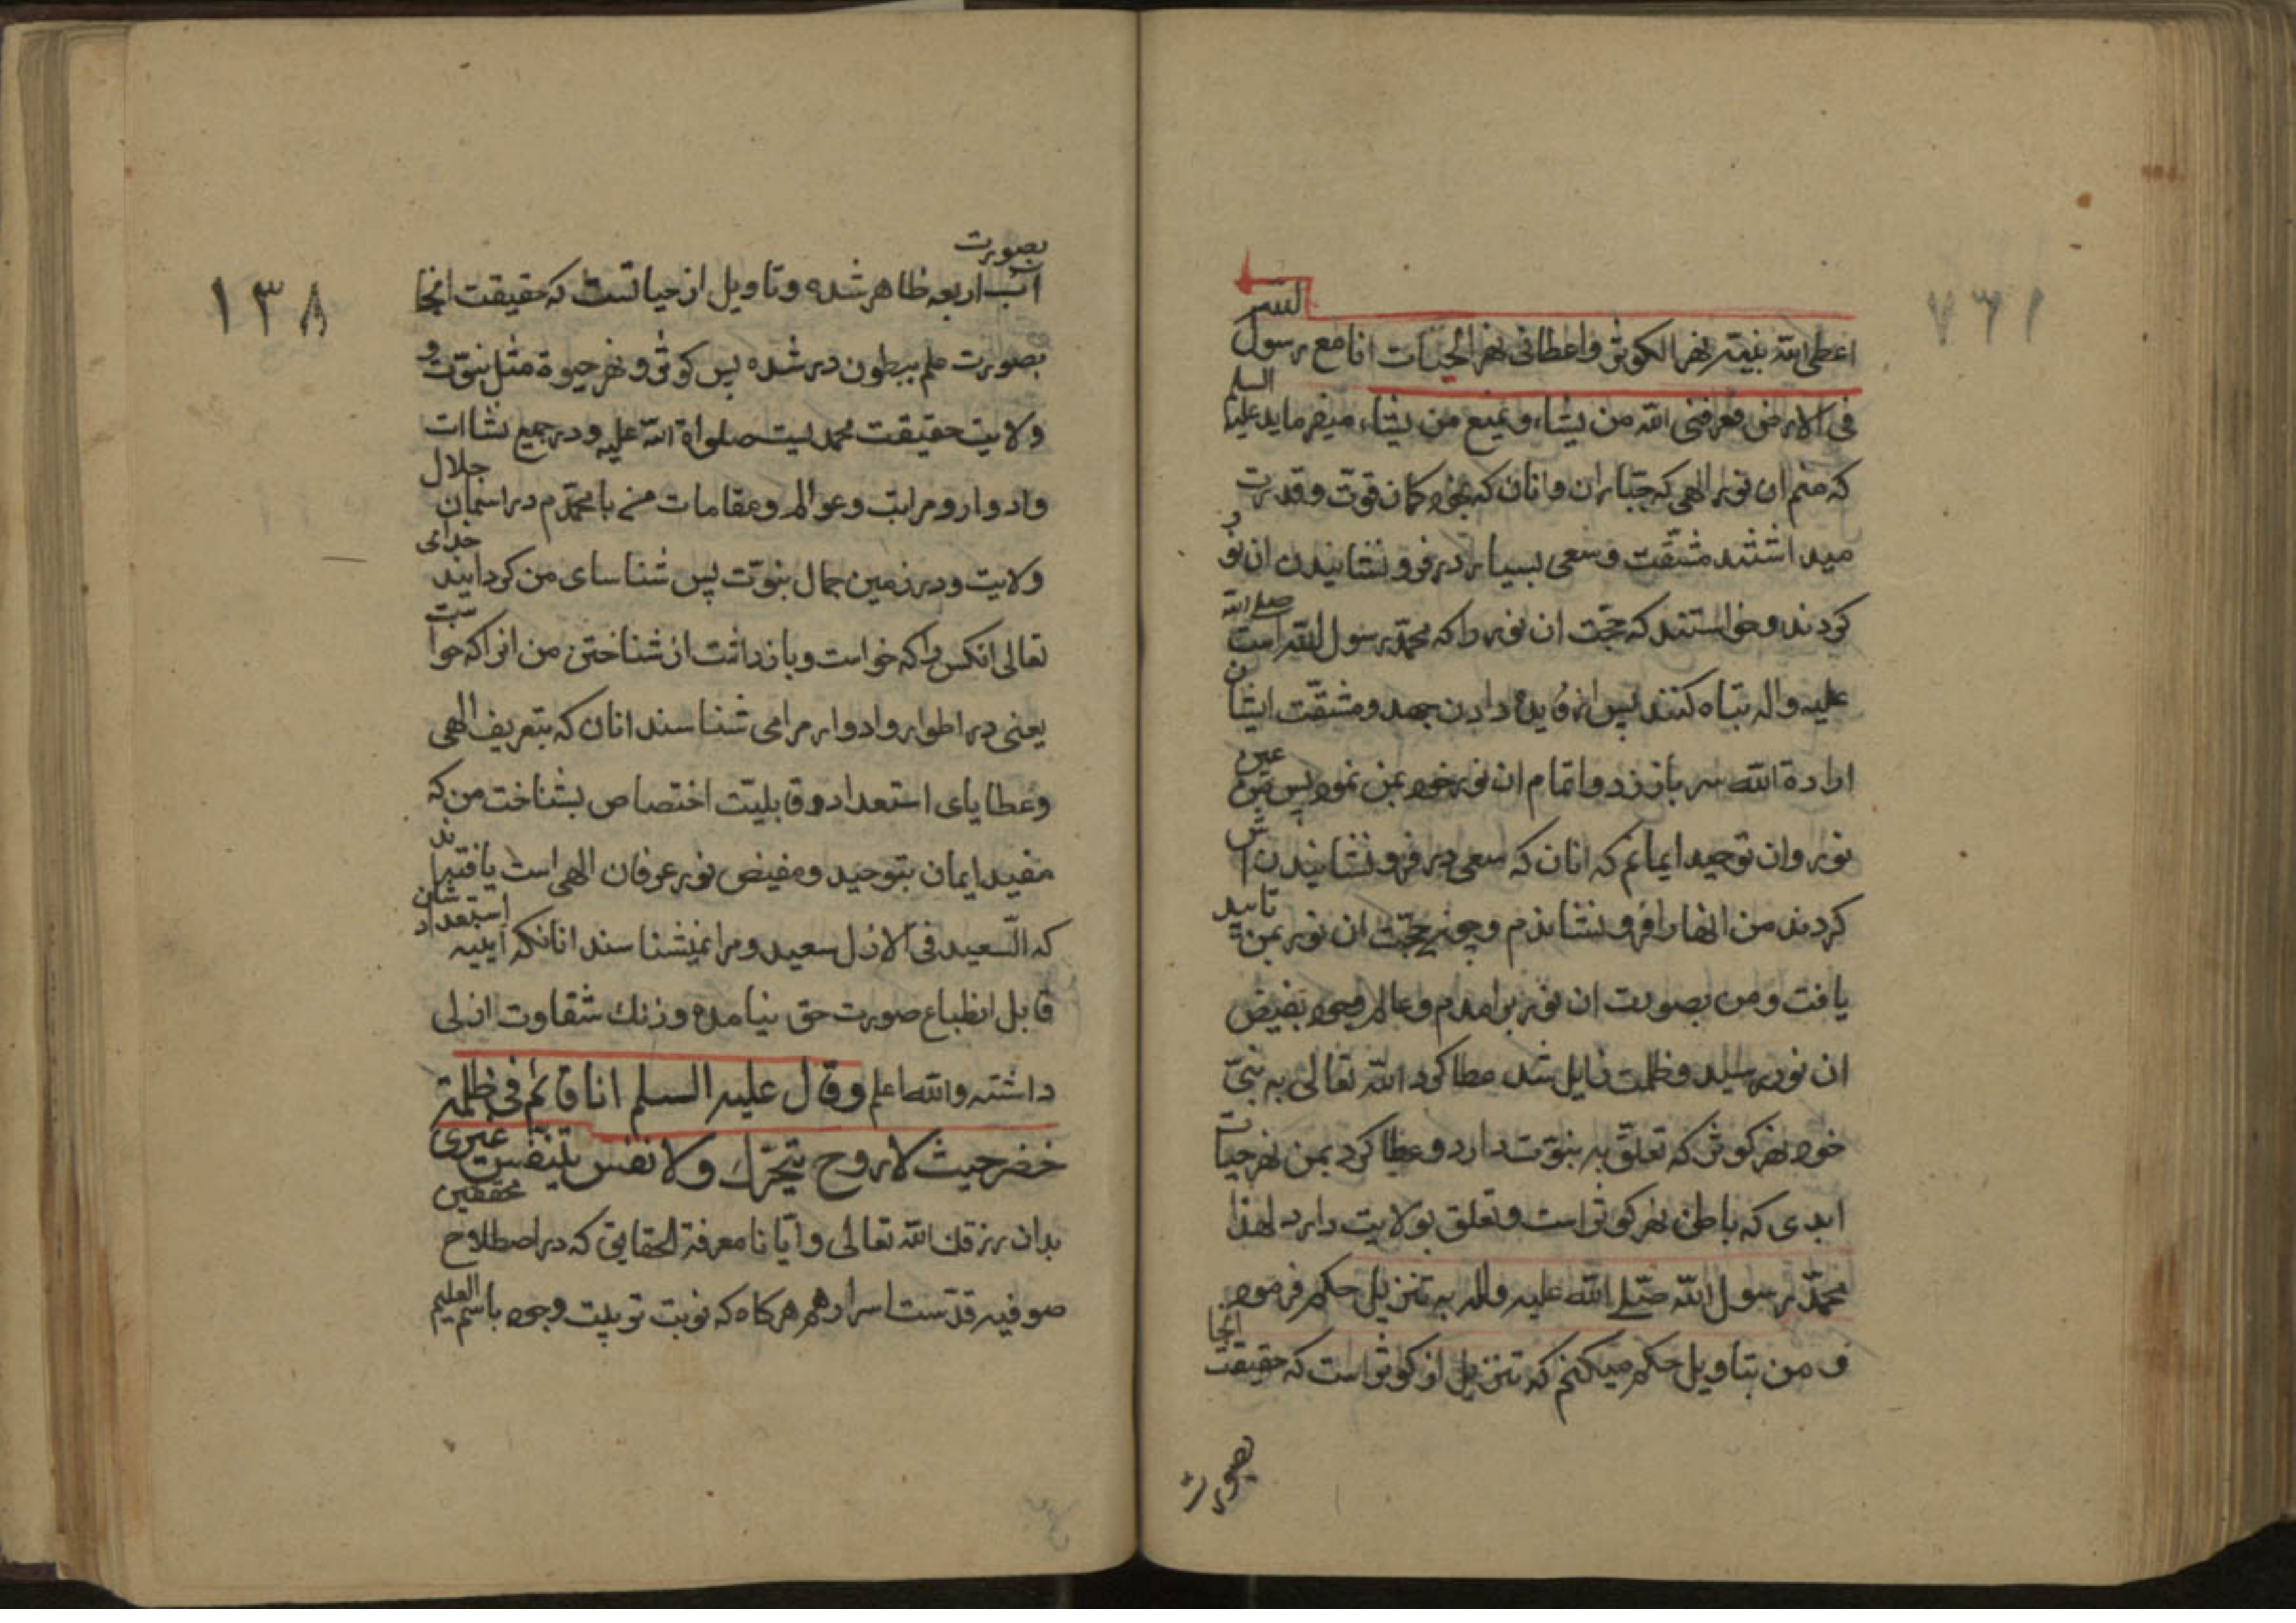 اعطی الله نبیه نهر الکوثر واعطانی نهر الحیات انا مع رسول الله
فی الارض فعرفنی الله من یشاء ویمنع من یشاء میفرماید علیه السلم
که منم ان نور الهی که جباران وانان که بخود کمان قوت وقدرت
میداشتند مشقت وسعی بسیار در فرونشانیدن ان نور
کردند وخواستند که حجت ان نور را که محمد رسول الله است صلی الله
علیه واله تباه کنند پس از دادن جهد ومشقت ایشان
ارادة الله سر باز زد واتمام ان نور خود بمن نمود پس من عین
نور وان توحید ایمانم که انان که سعی در فرونشانیدنش
کردند من انها را فرونشاندم وچون حجت ان نور بمن تایید
یافت ومن بصورت ان نور برامدم وعالم وجود بفیض
ان نور رسید وظلمت زایل شد عطا کرد الله تعالی به نبی
خود نهر کوثر که تعلق به نبوت دارد وعطا کرد بمن نهر حیات
ابدی که باطن نهر کوثر است وتعلق بولایت دارد لهذا
محمد رسول الله صلی الله علیه واله به تنزیل حکم فرمود
و من بتاویل حکم میکنم که تنزیل از کوثر است که حقیقت انجا
بصورت
۱۳۸
بصورت
آب اربعه ظاهر شده وتاویل از حیاتست که حقیقت انجا
بصورت علم ببطون در شده پس کوثر و نهر حیوة مثل نبوت و
ولایت حقیقت محمدیست صلواة الله علیه ودر جمیع نشاات
وادوار ومراتب وعوالم ومقامات من با محمدم در اسمان جلال
ولایت ودر زمین جمال نبوت پس شناسای من کردانید خدای
تعالی انکس را که خواست وبازداشت از شناختن من انرا که خواست
یعنی در اطوار وادوار مرا می شناسند انان که بتعریف الهی
وعطایای استعداد وقابلیت اختصاص بشناخت من که
مفید ایمان بتوحید ومفیض نور عرفان الهی است یافته‌اند
که السعید فی الازل سعید ومرا نمیشناسند انانکه ایینه استعدادشان
قابل انطباع صورت حق نیامده وزنك شقاوت ازلی
داشته والله اعلم وقال علیه السلم انا قائم فی ظلمة
خضر حیث لا روح یتحرك ولا نفس یتنفس غیری
بدان رزقك الله تعالی وایانا معرفة الحقایق که در اصطلاح محققین
صوفیه قدست اسرارهم هرکاه که نوبت تربیت وجود باسم العلیم